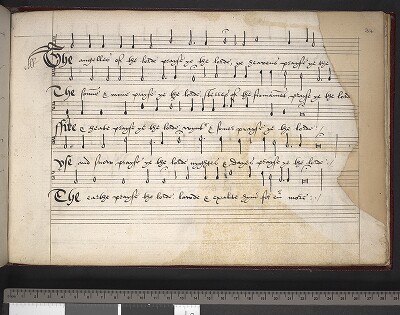 The angelles of the lorde prayse ye the lorde, ye heavens prayse ye the
The sonne & mone prayse ye the lorde, sterres of the firmament prayse ye the lord
ffire & heate prayse ye the lorde, wynter & somer prayse ye the lorde :/
yse and snow prayse ye the lorde nyghtes & dayes prayse ye the lorde :/
The earthe prayse the lorde lawde & exalte hym for eu more :/